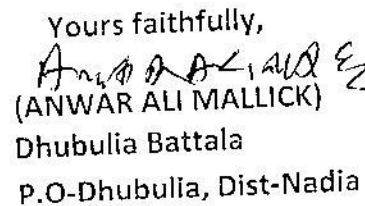 Yours faithfully,
(ANWAR ALI MALLICK)
Dhubulia Battala
P.O-Dhubulia, Dist-Nadia